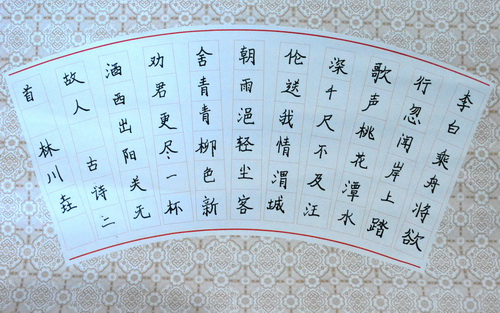 李白乘舟将欲
行忽闻岸上踏
歌声桃花潭水
深千尺不及汪
伦送我情渭城
朝雨浥轻尘客
舍青青柳色新
劝君更尽一杯
酒西出阳关无
故人 古诗二
首 林川垚